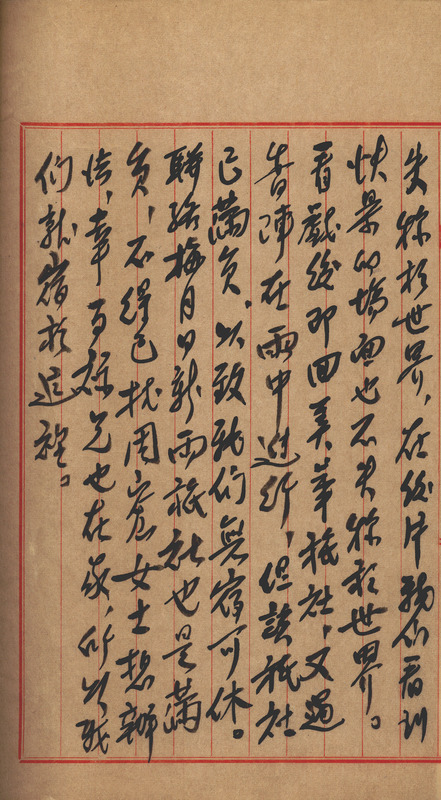 失称於世界，在後片我們看到
快景的場面也不失称於世界。
看戲後即回美華旅社，又遇
香陣在雨中進行，但該旅社
已滿員，以致我们無宿可休。
聯絡梅月日新兩旅社也是滿
員，不得已找周宏女士想辦
法，幸百祿兄也在家，所以我
们就宿於近裡。